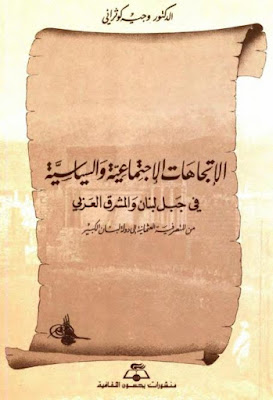 الدكتور وجيه كوثراني
الإتجاهات الإجتماعية والسياسية
في جبل لبنان والمشرق العربي
من المتصرفية العثمانية إلى دولة لبنان الكبير
منشورات بحسون الثقافية